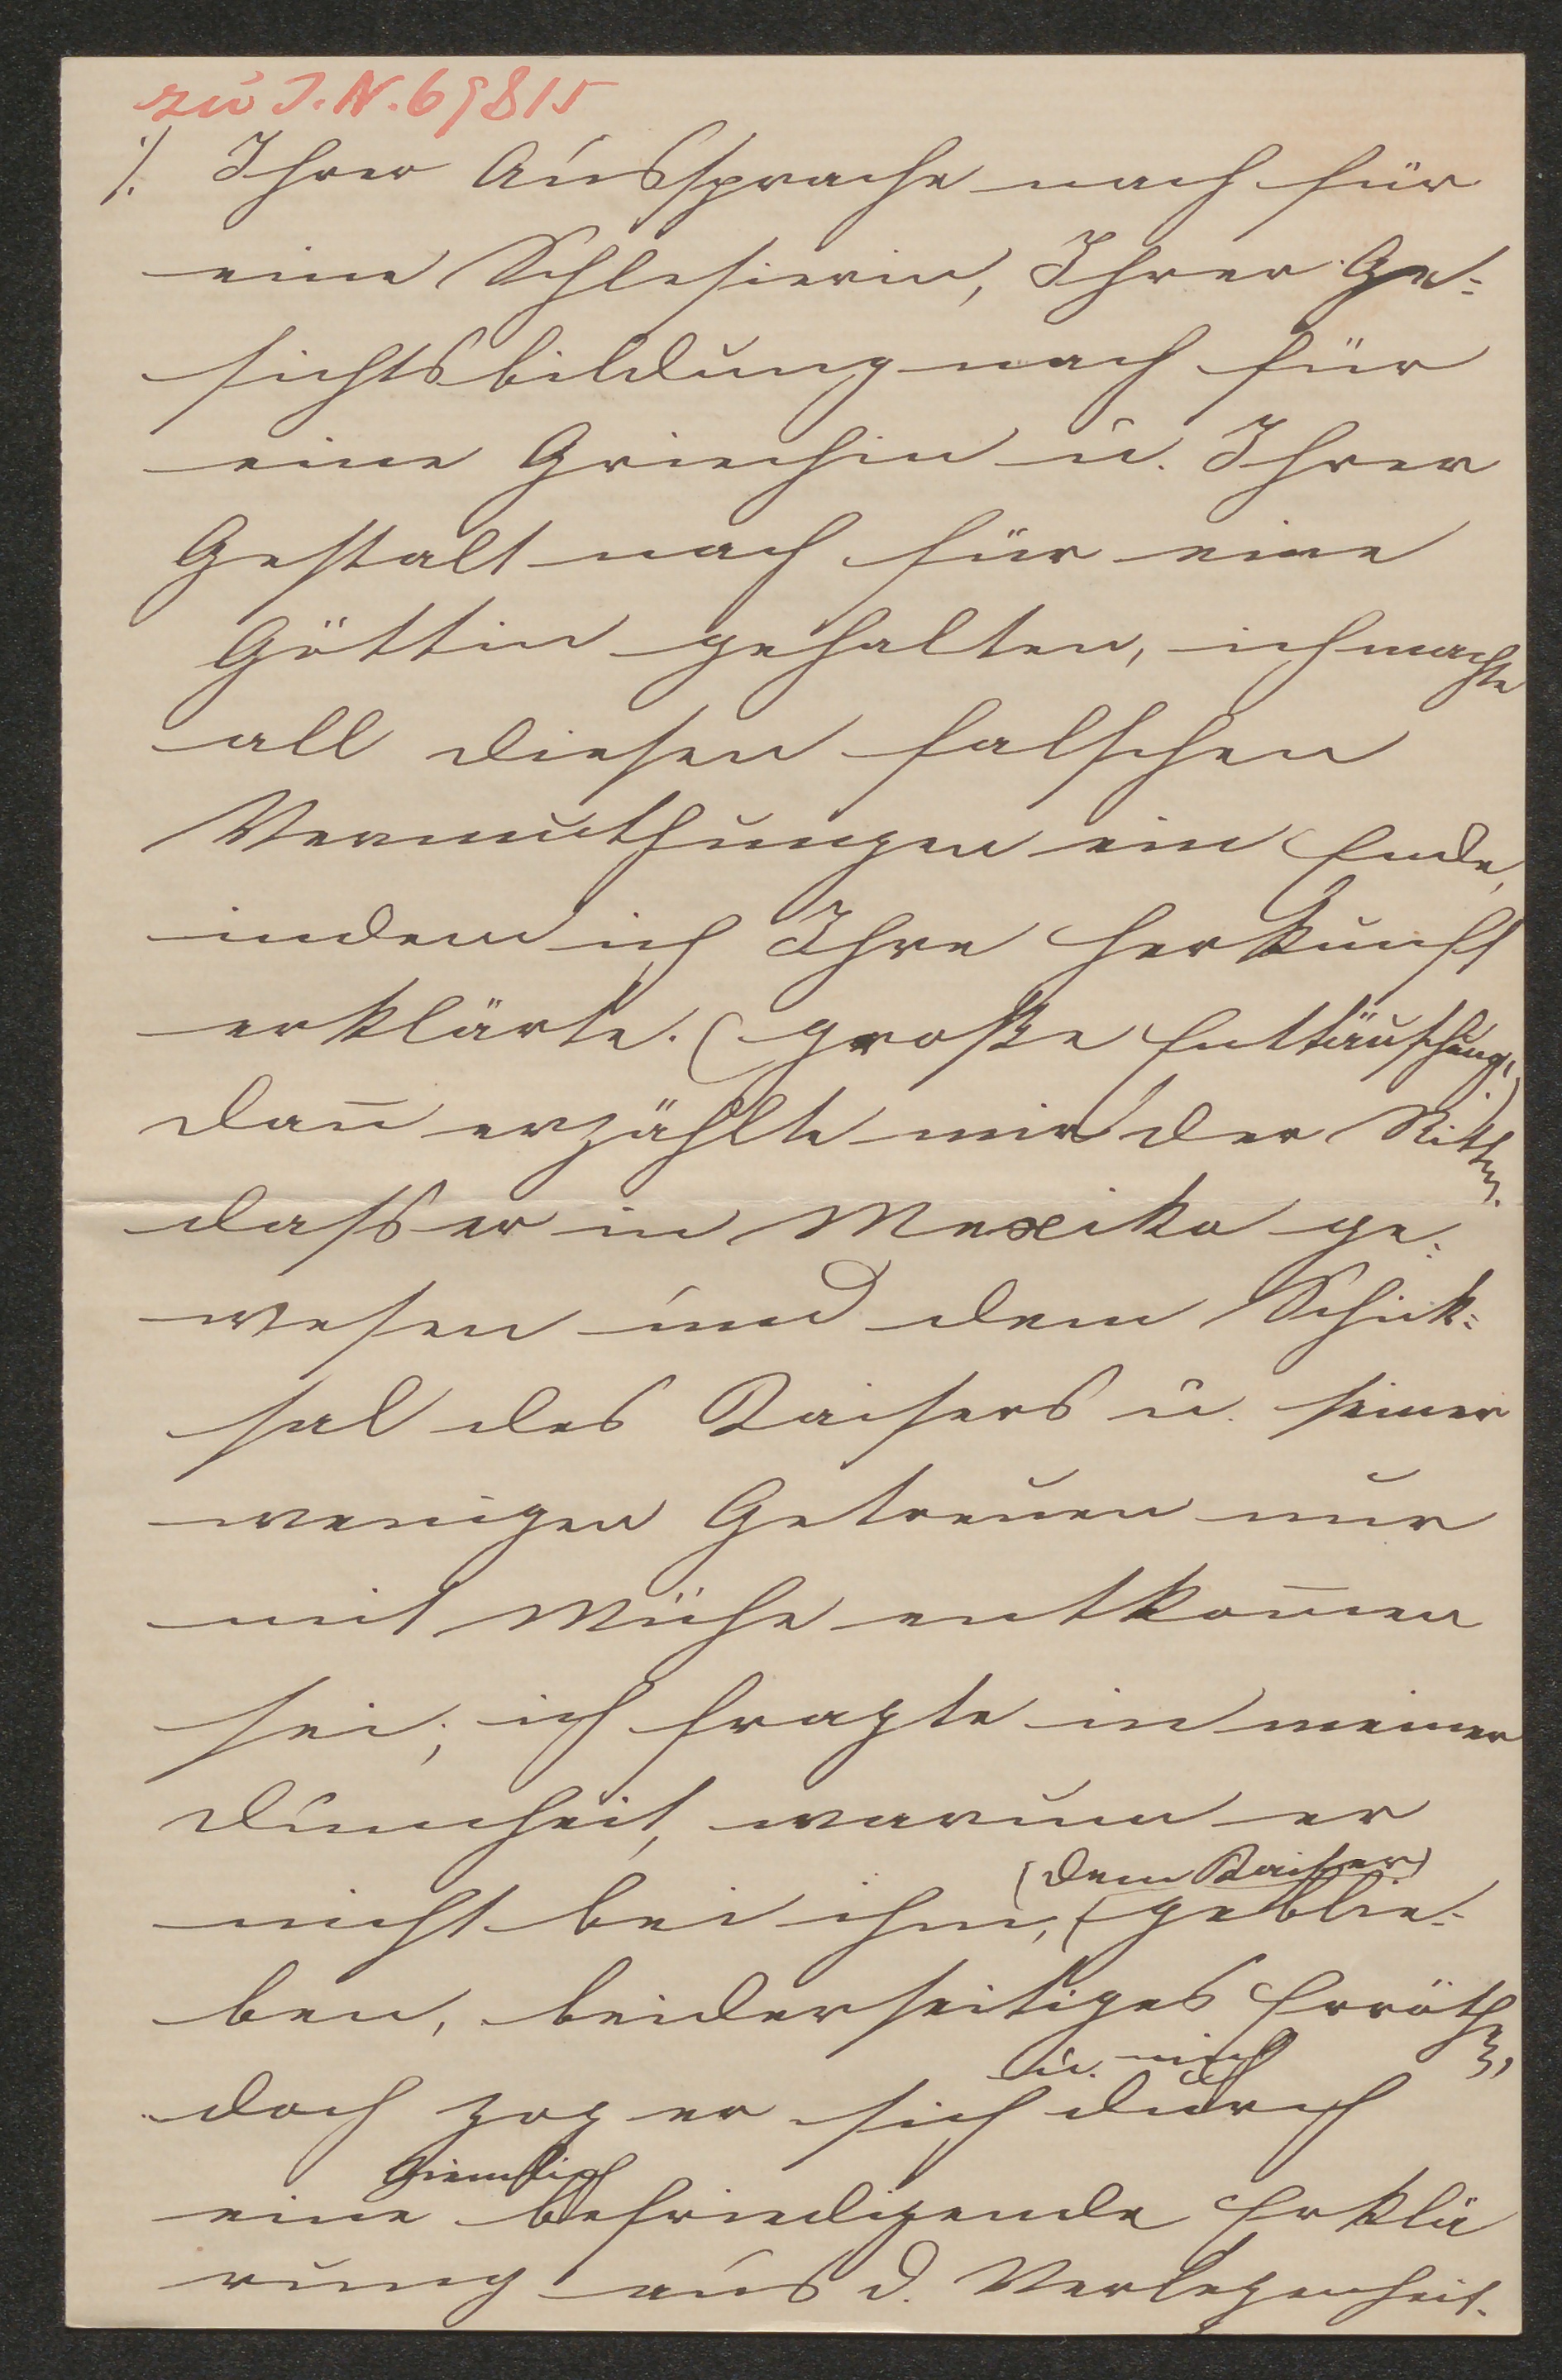 zu I.N. 69815
./. Ihrer Aussprache nach für
eine Schlesierin, Ihrer Ge-
sichtsbildung nach für
eine Griechin u. Ihrer
Gestalt nach für eine
Göttin gehalten, ich machte
all diesen falschen
Vermuthungen ein Ende,
indem ich Ihre Herkunft
erklärte. (große Enttäuschung!)
dann̄ erzählte mir der Rittm.
dass er in Mexiko ge-
wesen und dem Schick-
sal des Kaisers u. seiner
wenigen Getreuen nur
mit Mühe entkom̄en
sei; ich fragte in meiner
Dum̄heit, warum er
(dem Kaiser)
nicht bei ihm, geblie-
ben, beiderseitiges Erröthen,
u. mich
doch zog er sich durch
ziemlich
eine befriedigende Erklä
rung aus d. Verlegenheit.